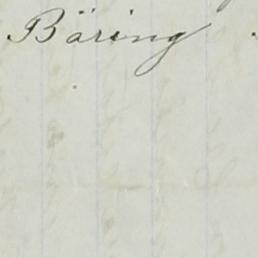 Bäring